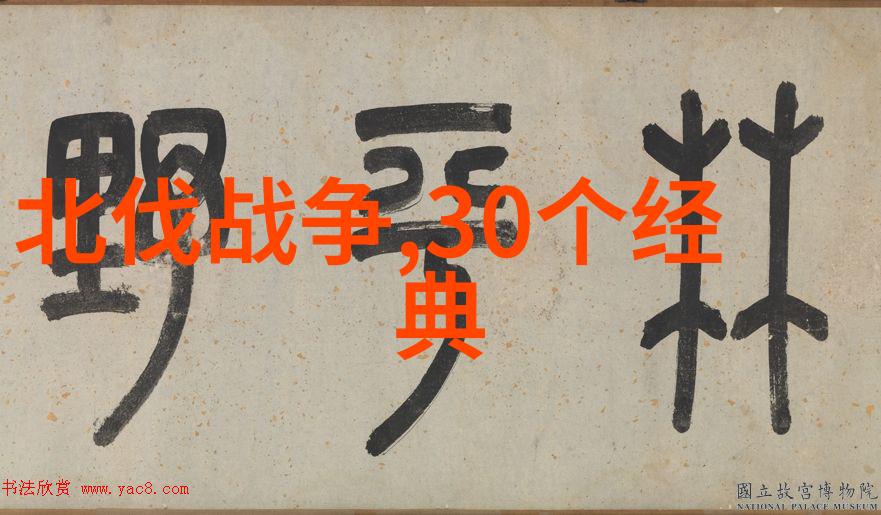 北伐战争,30个经
典
林平野
书法欣赏 www.yac8.com
國立故宮博物院
NATIONAL PALACE MUSEUM